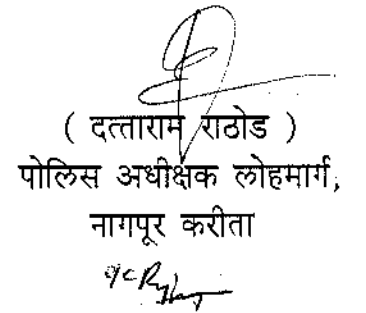 ( दत्ताराम राठोड )
पोलिस अधीक्षक लोहमार्ग,
नागपूर करीता